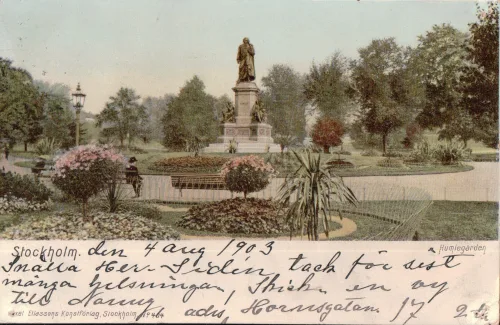 Stockholm. den 4 aug 1903
Humlegården
Snälla Herr Lidén, tack för sist
många helsningar, Skick en vy
till Nanny adr. Hornsgatan 17 2 tr.
Axel Eliassons Konstförlag, Stockholm.